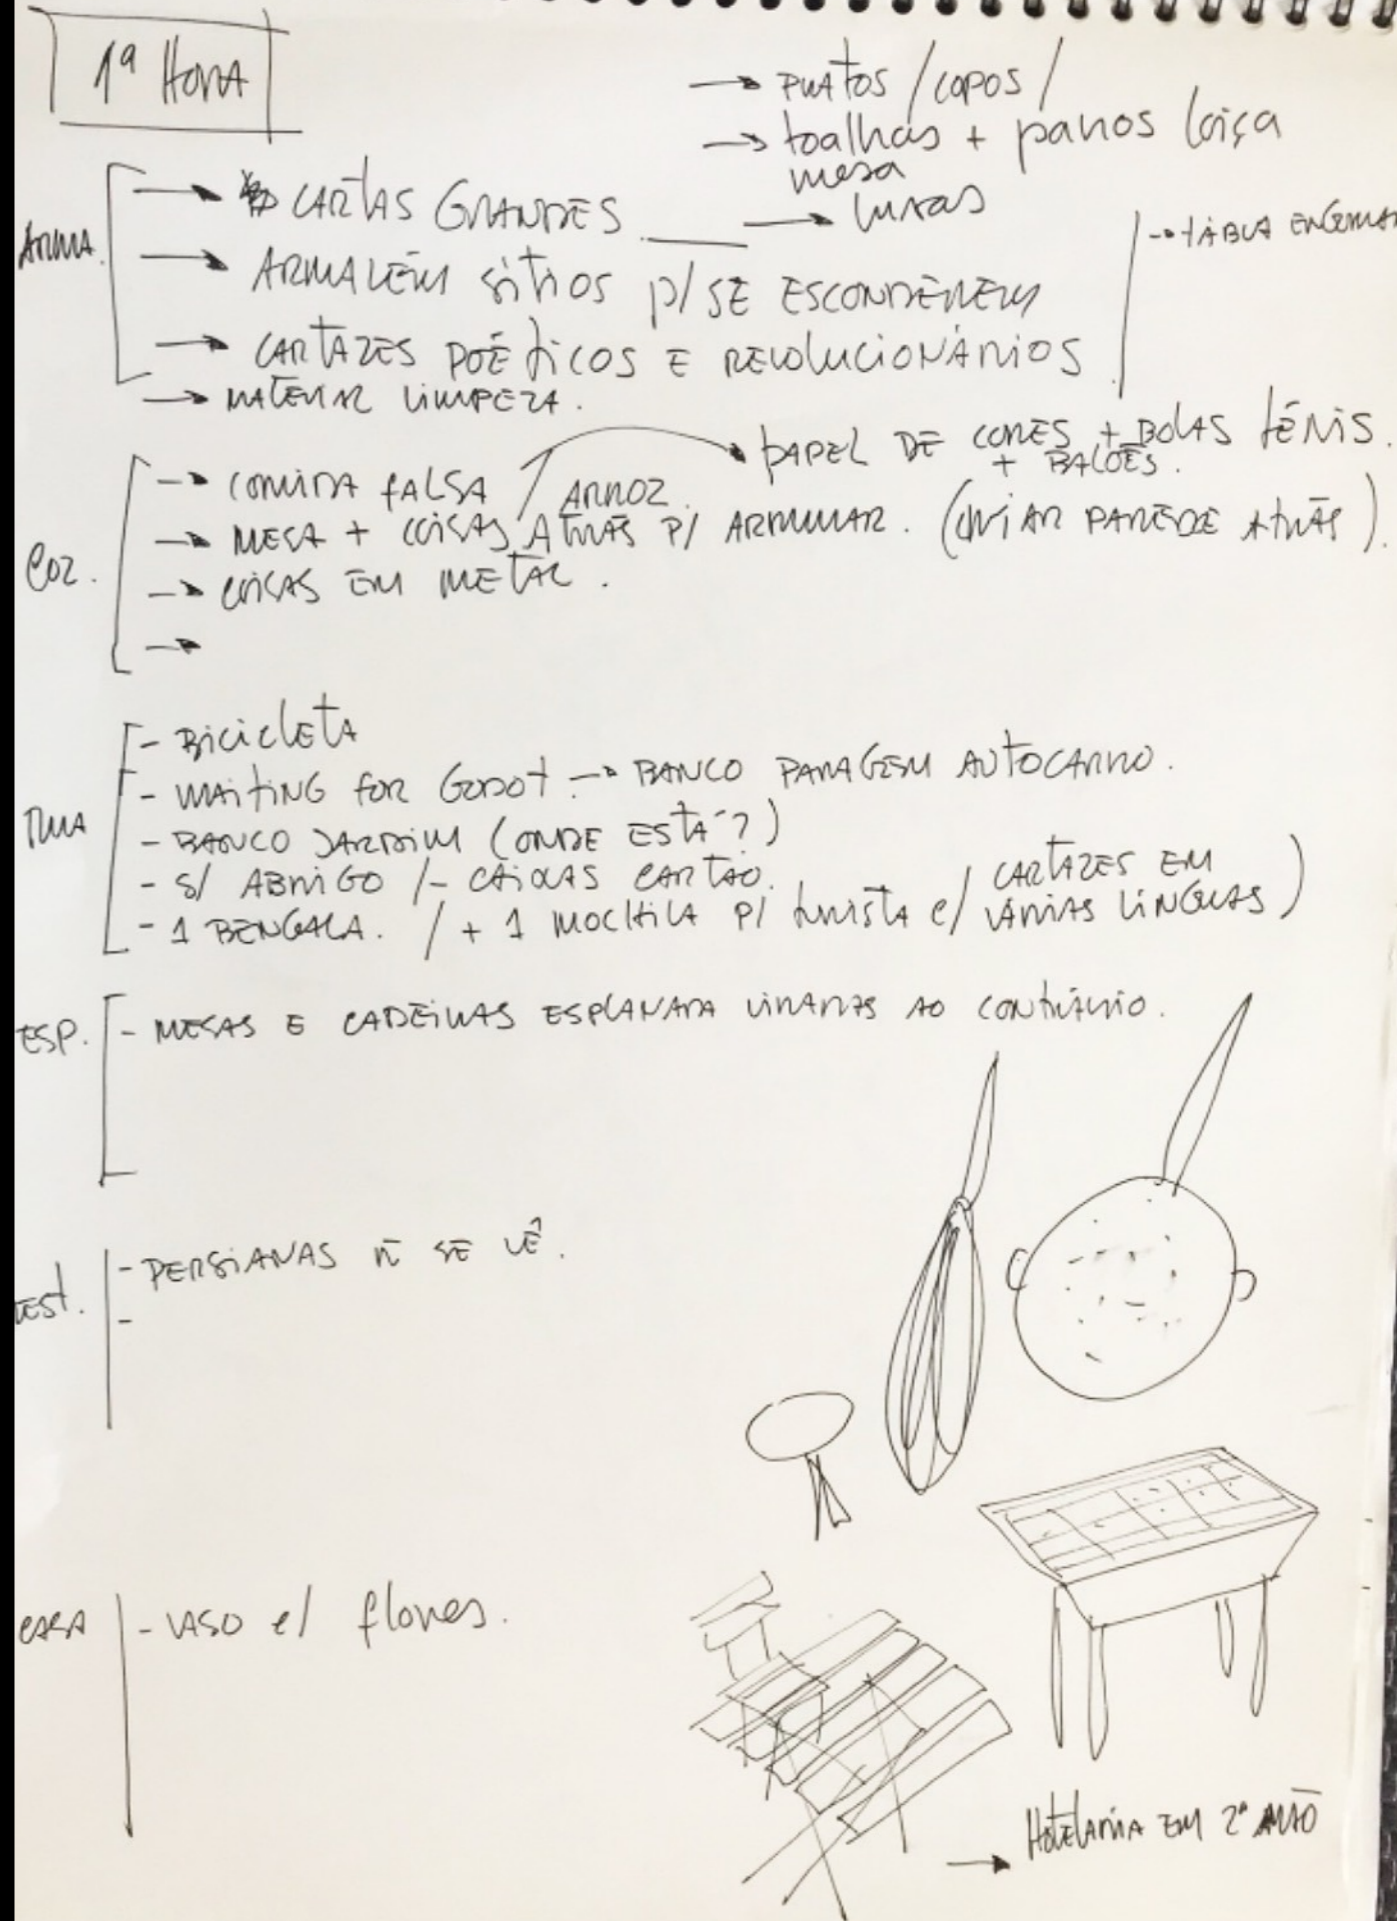 1ª HORA
→ PRATOS / COPOS /
→ toalhas + panos loiça
mesa
→ CARTAS GRANDES → LUVAS
ARMA.
→ TÁBUA ENGOMAR
→ ARMALÉM SÍTIOS P/ SE ESCONDEREM
→ CARTAZES POÉTICOS E REVOLUCIONÁRIOS
→ MATERIAL LIMPEZA.
→ PAPEL DE CORES + BOLAS TÉNIS.
+ BALÕES.
→ COMIDA FALSA / ARROZ.
→ MESA + COISAS ATRÁS P/ ARRUMAR. (CRIAR PAREDE ATRÁS).
COZ.
→ COISAS EM METAL.
→
- BICICLETA
- WAITING FOR GODOT → BANCO PARAGEM AUTOCARRO.
RUA
- BANCO JARDIM (ONDE ESTÁ?)
- S/ ABRIGO /- CAIXAS CARTÃO.
- 1 BENGALA. / + 1 MOCHILA P/ turista c/ CARTAZES EM VÁRIAS LÍNGUAS)
ESP.
- MESAS E CADEIRAS ESPLANADA VIRADAS AO CONTRÁRIO.
EST.
- PERSIANAS Ñ SE VÊ.
-
CASA
- VASO c/ flores.
→ HOTELARIA EM 2ª MÃO